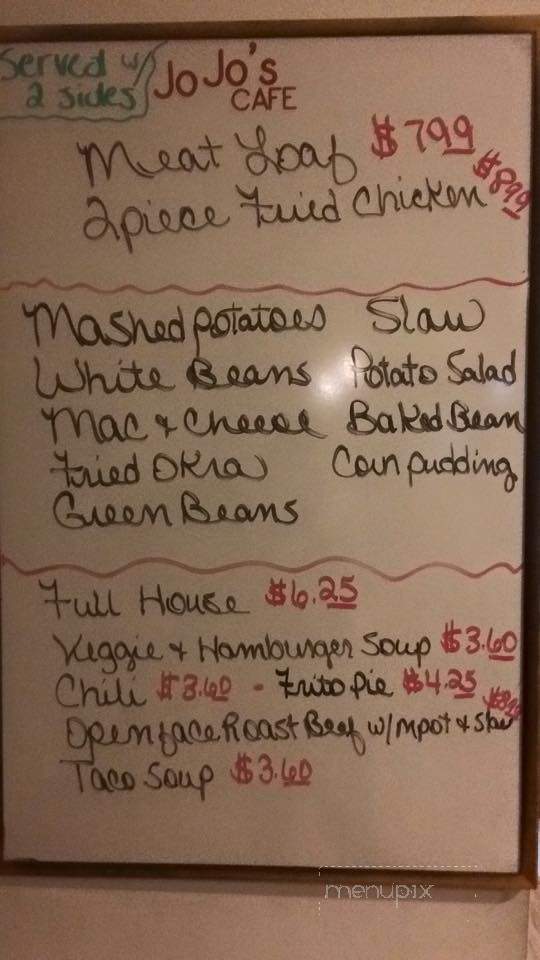 Served w/
2 sides
JoJo's
CAFE
Meat Loaf $7.99
2piece Fried Chicken $8.99
Mashed potatoes Slaw
White Beans Potato Salad
Mac & Cheese Baked Bean
Fried Okra Corn pudding
Green Beans
Full House $6.25
Veggie & Hamburger Soup $3.60
Chili $3.60 - Frito Pie $4.25
Openface Roast Beef w/mpot & Slaw
Taco Soup $3.60
menupix